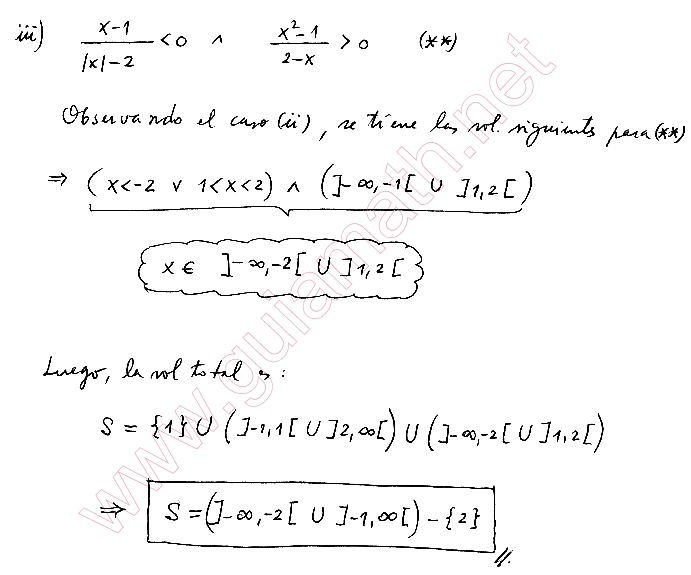 iii) x-1 / |x|-2 < 0 ∧ x²-1 / 2-x > 0 (**)
Observando el caso (ii), se tiene las sol. siguients para (**)
⇒ (x<-2 ∨ 1<x<2) ∧ (]-∞,-1[ ∪ ]1,2[)
x ∈ ]-∞,-2[ ∪ ]1,2[
Luego, la sol total es:
S = {1} ∪ (]-1,1[ ∪ ]2,∞[) ∪ (]-∞,-2[ ∪ ]1,2[)
⇒ S = (]-∞,-2[ ∪ ]-1,∞[) - {2}
www.guiamath.net